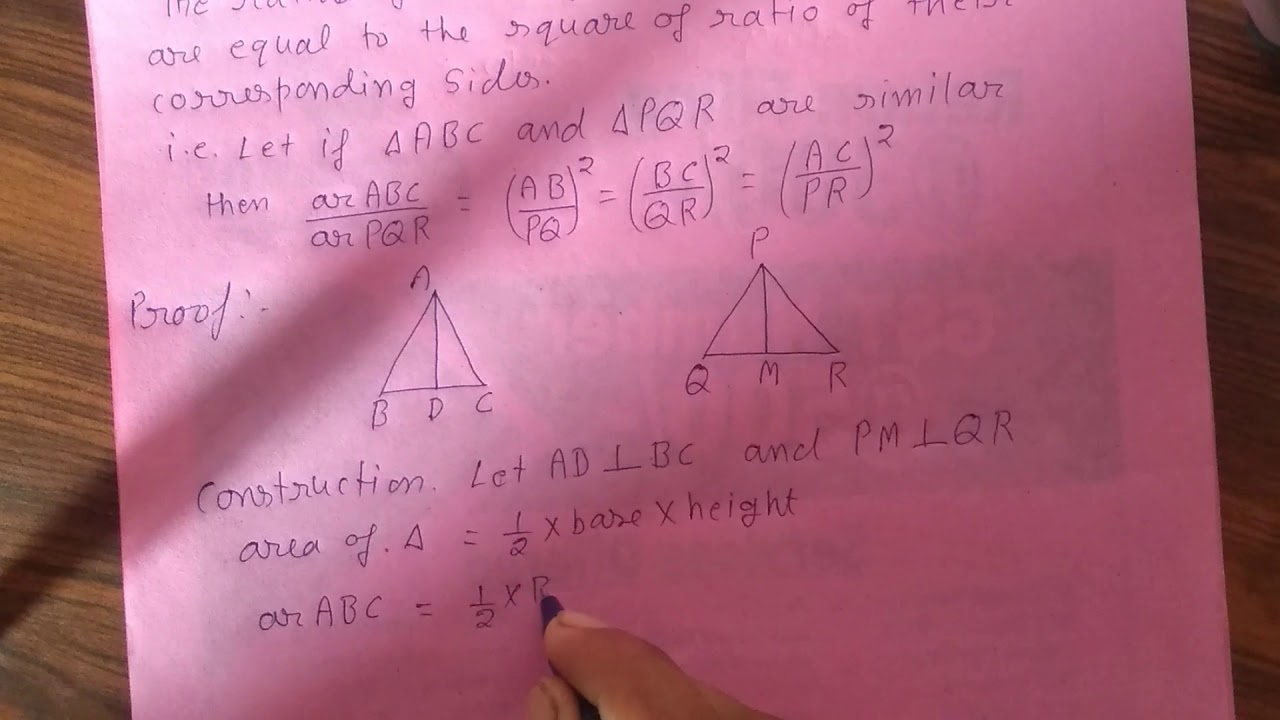 The
are equal to the square of ratio of their
corresponding sides.
i.e. Let if △ABC and △PQR are similar
then ar ABC / ar PQR = (AB/PQ)² = (BC/QR)² = (AC/PR)²
Proof:-
A P
B D C Q M R
Construction. Let AD⊥BC and PM⊥QR
area of. △ = 1/2 × base × height
ar ABC = 1/2 × B